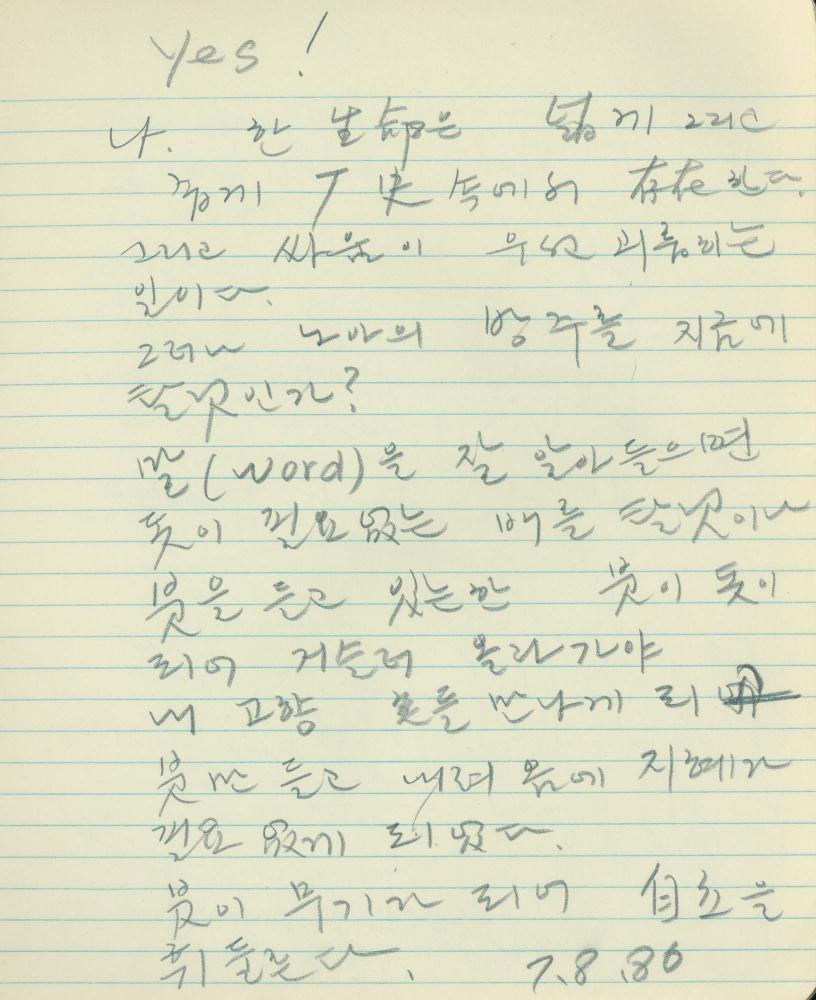 yes!
나. 한 生命은 넓게 그리고
주게 丁 史 속에서 存在한다.
그리고 싸움이 우선 괴롱되는
일이다.
그러나 노아의 방주를 지금에
탈것인가?
말(word)을 잘 알아들으면
돗이 필요없는 배를 탈것이나
붓을 들고 있는한 붓이 돗이
되어 거슬러 올라가야
내 고향 꽃들 만나게 되
붓만 들고 내려옴에 지혜가
필요 없게 되었다.
붓이 무기가 되어 自 을
휘둘른다. 7.8.86